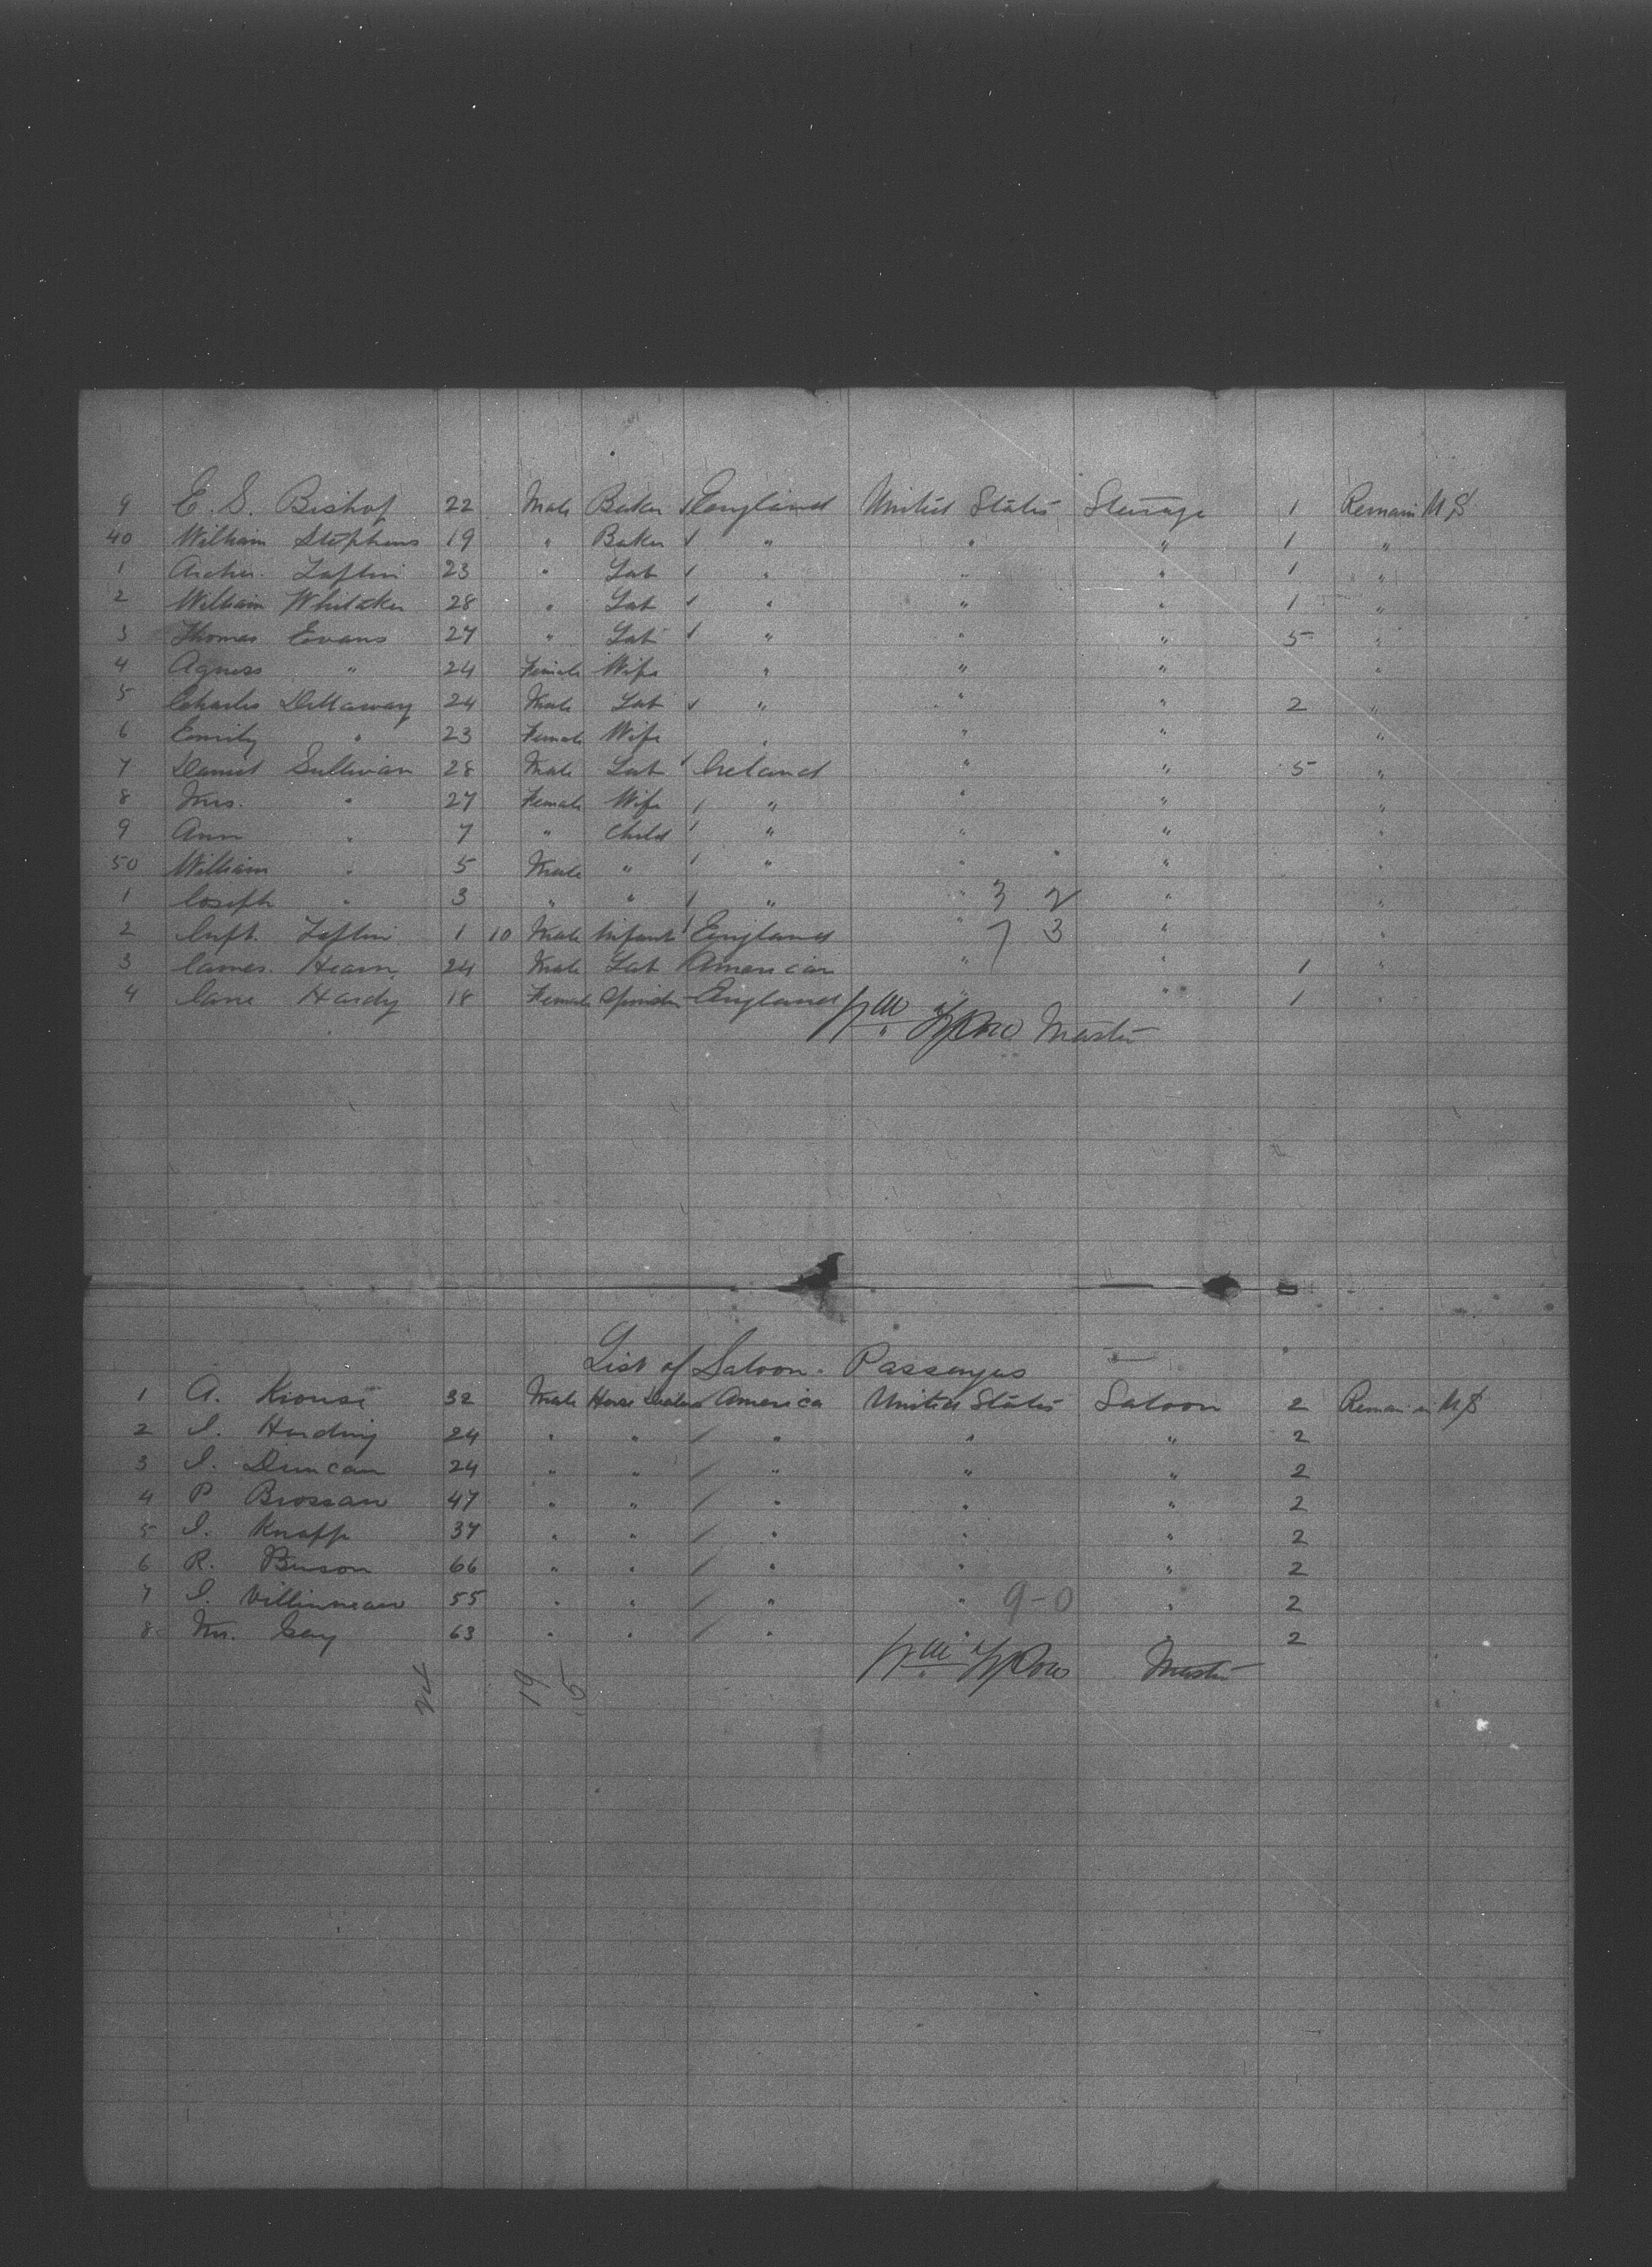 9 E. S. Bishop 22 Male Baker England United States Steerage 1 Remain U.S
40 William Stephens 19 " Baker " " " 1 "
1 Archer. Laflin 23 " Lab " " " 1 "
2 William Whitaker 28 " Lab " " " 1 "
3 Thomas Evans 27 " Lab " " " 5 "
4 Agness " 24 Female Wife " " " "
5 Charles Dillaway 24 Male Lab " " " 2 "
6 Emily " 23 Female Wife " " " "
7 Daniel Sullivan 28 Male Lab Ireland " " 5 "
8 Mrs. " 27 Female Wife " " " "
9 Ann " 7 " Child " " " "
50 William " 5 Male " " " " "
1 Joseph " 3 " " " " 3 2 " "
2 Inft. Laflin 1 10 Male Infant England " 7 3 " "
3 James. Hearn 24 Male Lab American " " 1 "
4 Jane Hardy 18 Female Spinster England " " 1 "
Master
List of Saloon Passengers
1 A. Krouse 32 Male Horse Dealer America United States Saloon 2 Remain in U.S
2 I. Harding 24 " " " " " 2
3 I. Duncan 24 " " " " " 2
4 P Brossaw 47 " " " " " 2
5 I. Knapp 37 " " " " " 2
6 R. Beuson 66 " " " " " 2
7 I. Villinneaw 55 " " " " 9-0 " 2
8 Mr. Gay 63 " " " " 2
Master
24 19 5